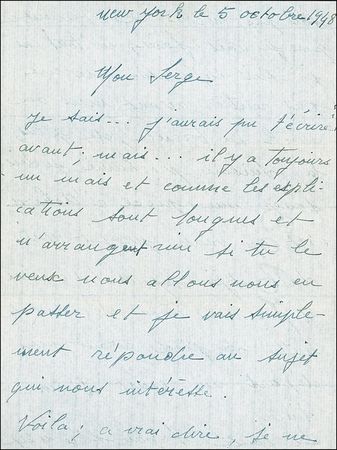 New York le 5 octobre 1948
Mon Serge
Je sais... j'aurais pu t'écrire
avant; mais... il y a toujours
un mais et comme les expli-
cations sont longues et
n'arrangent rien si tu le
veux nous allons nous en
passer et je vais simple-
ment répondre au sujet
qui nous intéresse.
Voila; a vrai dire, je ne